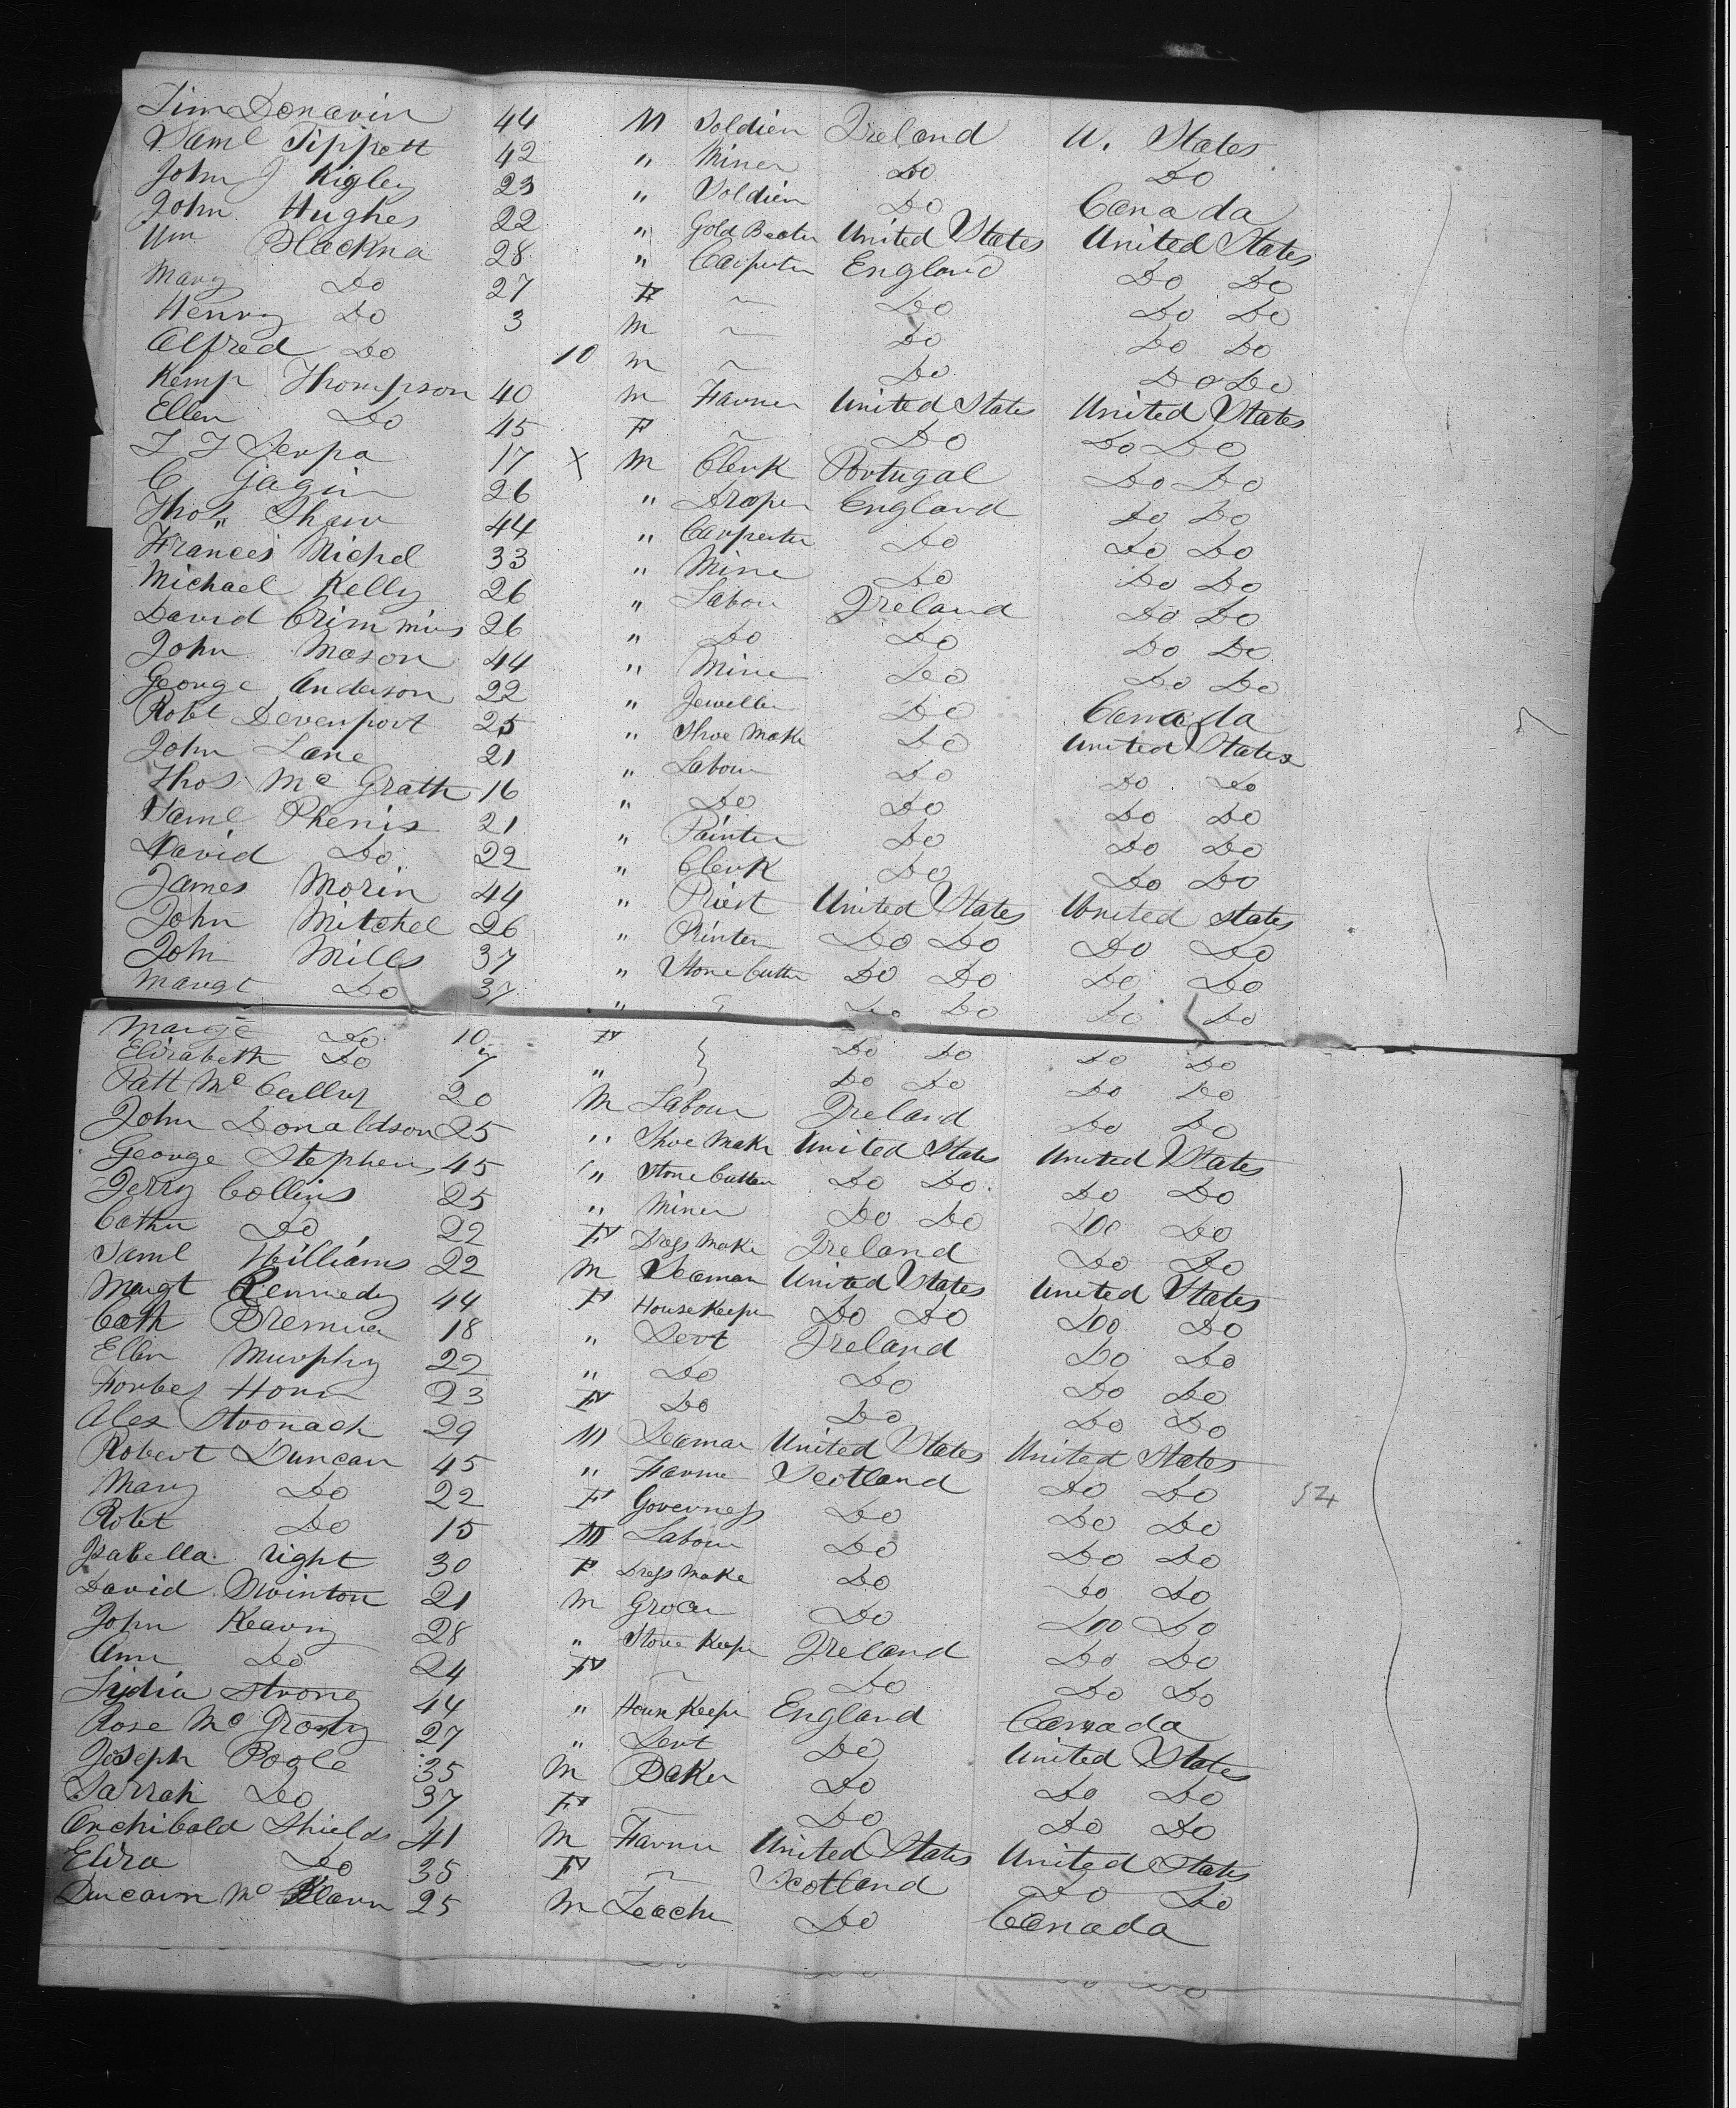 Tim Donavin 44 M Soldier Ireland U. States
Saml Tippett 42 " Miner Do Do
John J Rigley 23 " Soldier Do Canada
John Hughes 22 " Gold Beater United States United States
Wm Blackma 28 " Carpenter England Do Do
Mary Do 27 F ~ Do Do Do
Henry Do 3 M ~ Do Do Do
Alfred Do 10 M ~ Do Do Do
Kemp Thompson 40 M Farmer United States United States
Ellen Do 45 F ~ Do Do Do
J J Serpa 17 X M Clerk Portugal Do Do
C Gagin 26 " Draper England Do Do
Thos " Shaw 44 " Carpenter Do Do Do
Frances Michel 33 " Mine Do Do Do
Michael Kelly 26 " Labou Ireland Do Do
David Crimmins 26 " Do Do Do Do
John Mason 44 " Mine Do Do Do
George Anderson 22 " Jeweller Do Canada
Robt Devenport 25 " Shoe Make Do United States
John Lane 21 " Labour Do Do Do
Thos Mc Grath 16 " Do Do Do Do
Saml Phenix 21 " Painter Do Do Do
David Do 22 " Clerk Do Do Do
James Morin 44 " Priest United States United States
John Mitchel 26 " Printer Do Do Do Do
John Mills 37 " Stone Cutter Do Do Do Do
Margt Do 37 " Do Do Do Do
Margt Do 10 F Do Do Do Do
Elizabeth Do 7 " Do Do Do Do
Patt Mc Cally 20 M Labour Ireland Do Do
John Donaldson 25 " Shoe Make United States United States
George Stephens 45 " Stone Cutter Do Do Do Do
Jerry Collins 25 " Miner Do Do Do Do
Cathn Do 22 F Dress Make Ireland Do Do
Saml Williams 22 M Seaman United States United States
Margt Kennedy 44 F House Keeper Do Do Do Do
Cath 18 " Servt Ireland Do Do
Ellen Murphy 22 " Do Do Do Do
Forbes Horn 23 F Do Do Do Do
Alex Stronach 29 M Seaman United States United States
Robert Duncan 45 " Farme Scotland Do Do
Mary Do 22 F Governess Do Do Do 54
Robt Do 15 M Labour Do Do Do
Isabella right 30 F Dress Make Do Do Do
David Swinton 21 M Grocer Do Do Do
John Keavny 28 " Store Keeper Ireland Do Do
Ann Do 24 F ~ Do Do Do
Lydia Strong 44 " House Keeper England Canada
Rose Mc 27 " Servt Do United States
Joseph Pogle 35 M Baker Do Do Do
Sarrah Do 37 F ~ Do Do Do
Archibald Shields 41 M Farmer United States United States
Eliza Do 35 F ~ Scotland Do Do
Duncann Mc 25 M Teache Do Canada